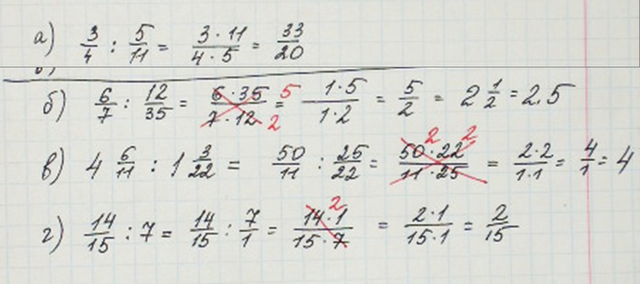 а) 3/4 : 5/11 = 3·11/4·5 = 33/20
б) 6/7 : 12/35 = 6·35/7·12 5 2 = 1·5/1·2 = 5/2 = 2 1/2 = 2,5
в) 4 6/11 : 1 3/22 = 50/11 : 25/22 = 50·22/11·25 2 2 = 2·2/1·1 = 4/1 = 4
г) 14/15 : 7 = 14/15 : 7/1 = 14·1/15·7 2 = 2·1/15·1 = 2/15